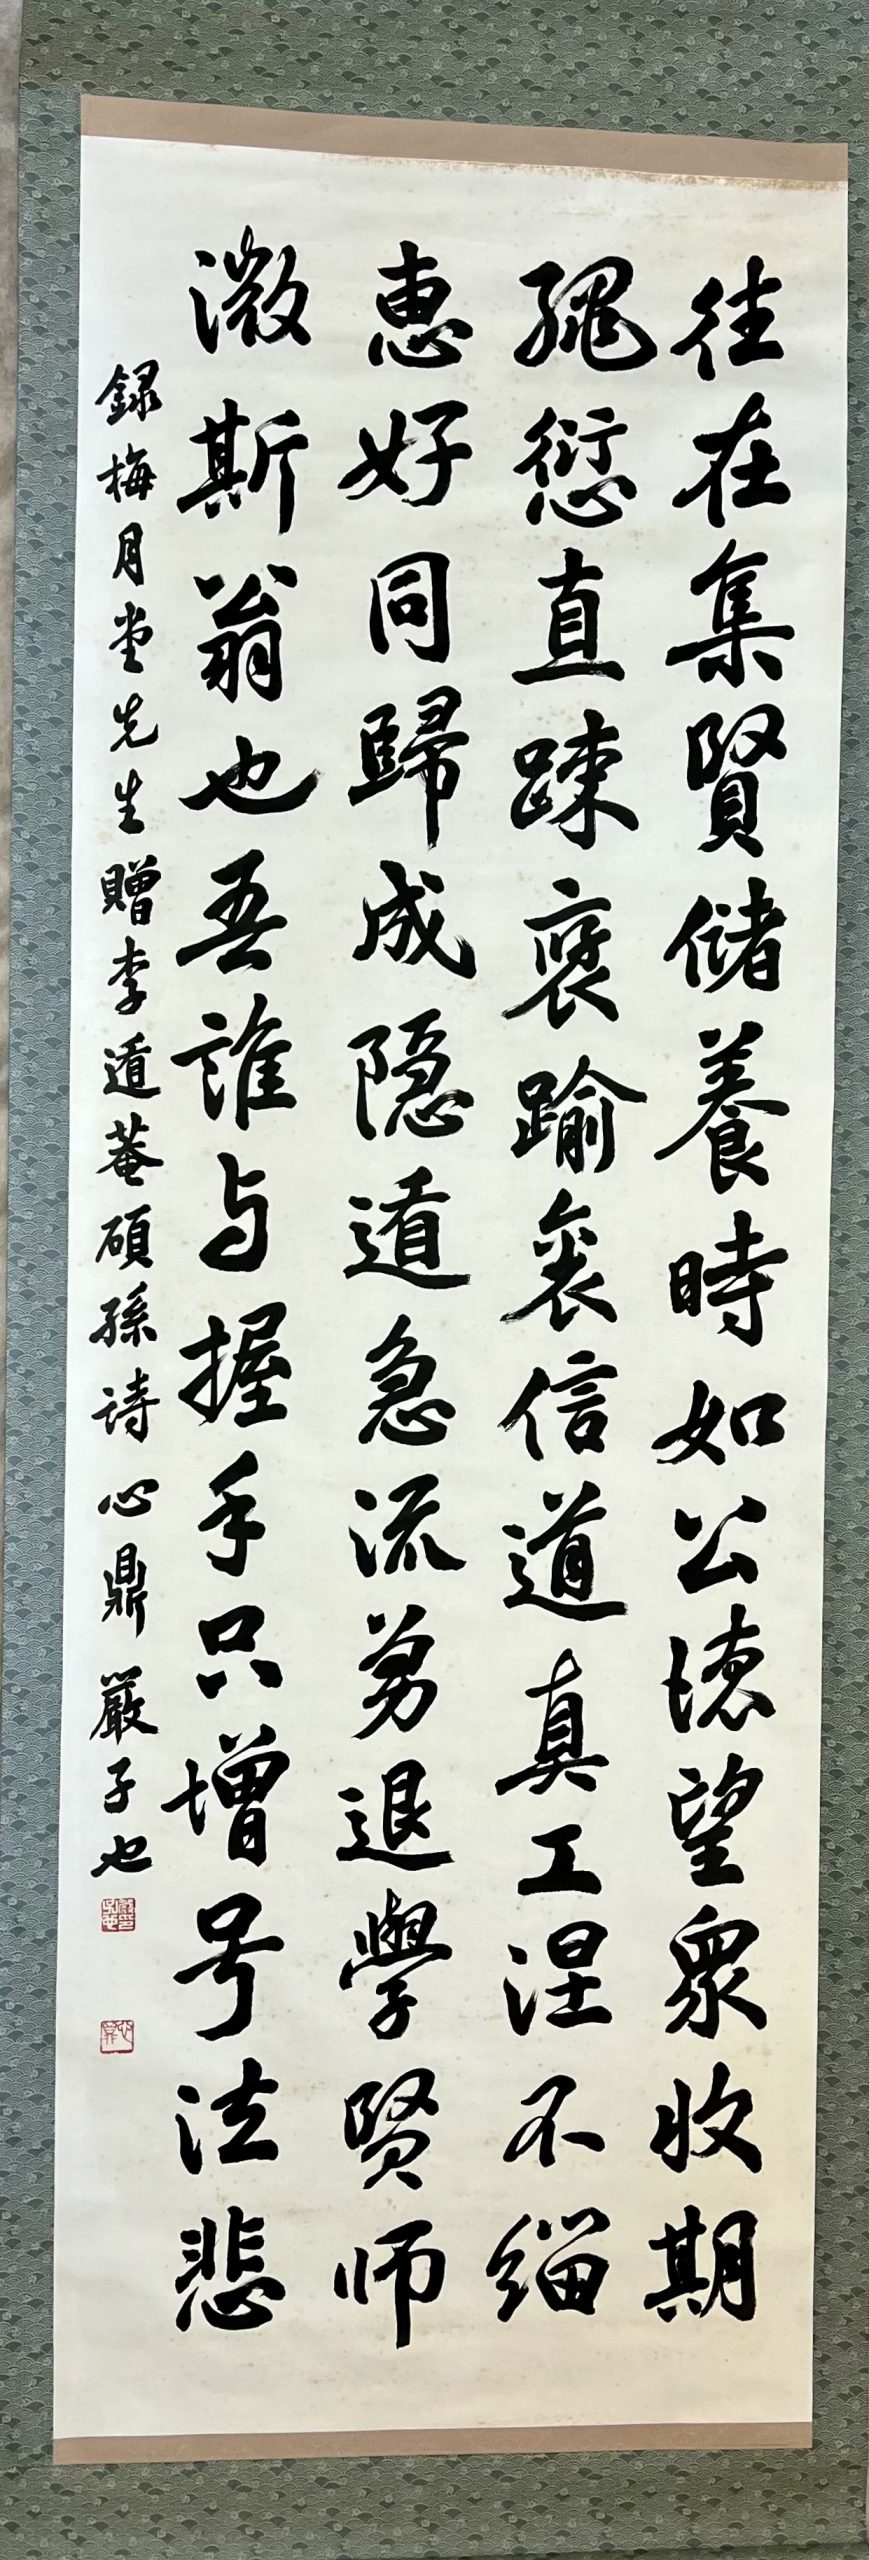 往在集賢儲養時如公德望眾收期
繩愆直疎裵踰衮信道真工涅不緇
惠好同歸成隱遁急流勇退學賢师
微斯翁也吾誰与握手只增号泣悲
録梅月堂先生贈李遁菴碩孫诗 心鼎 嚴子也